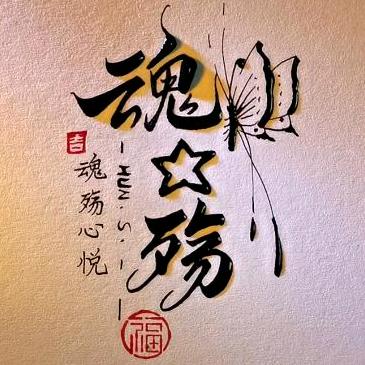 魂☆殇
HUN.S.
吉
魂殇心悦
福